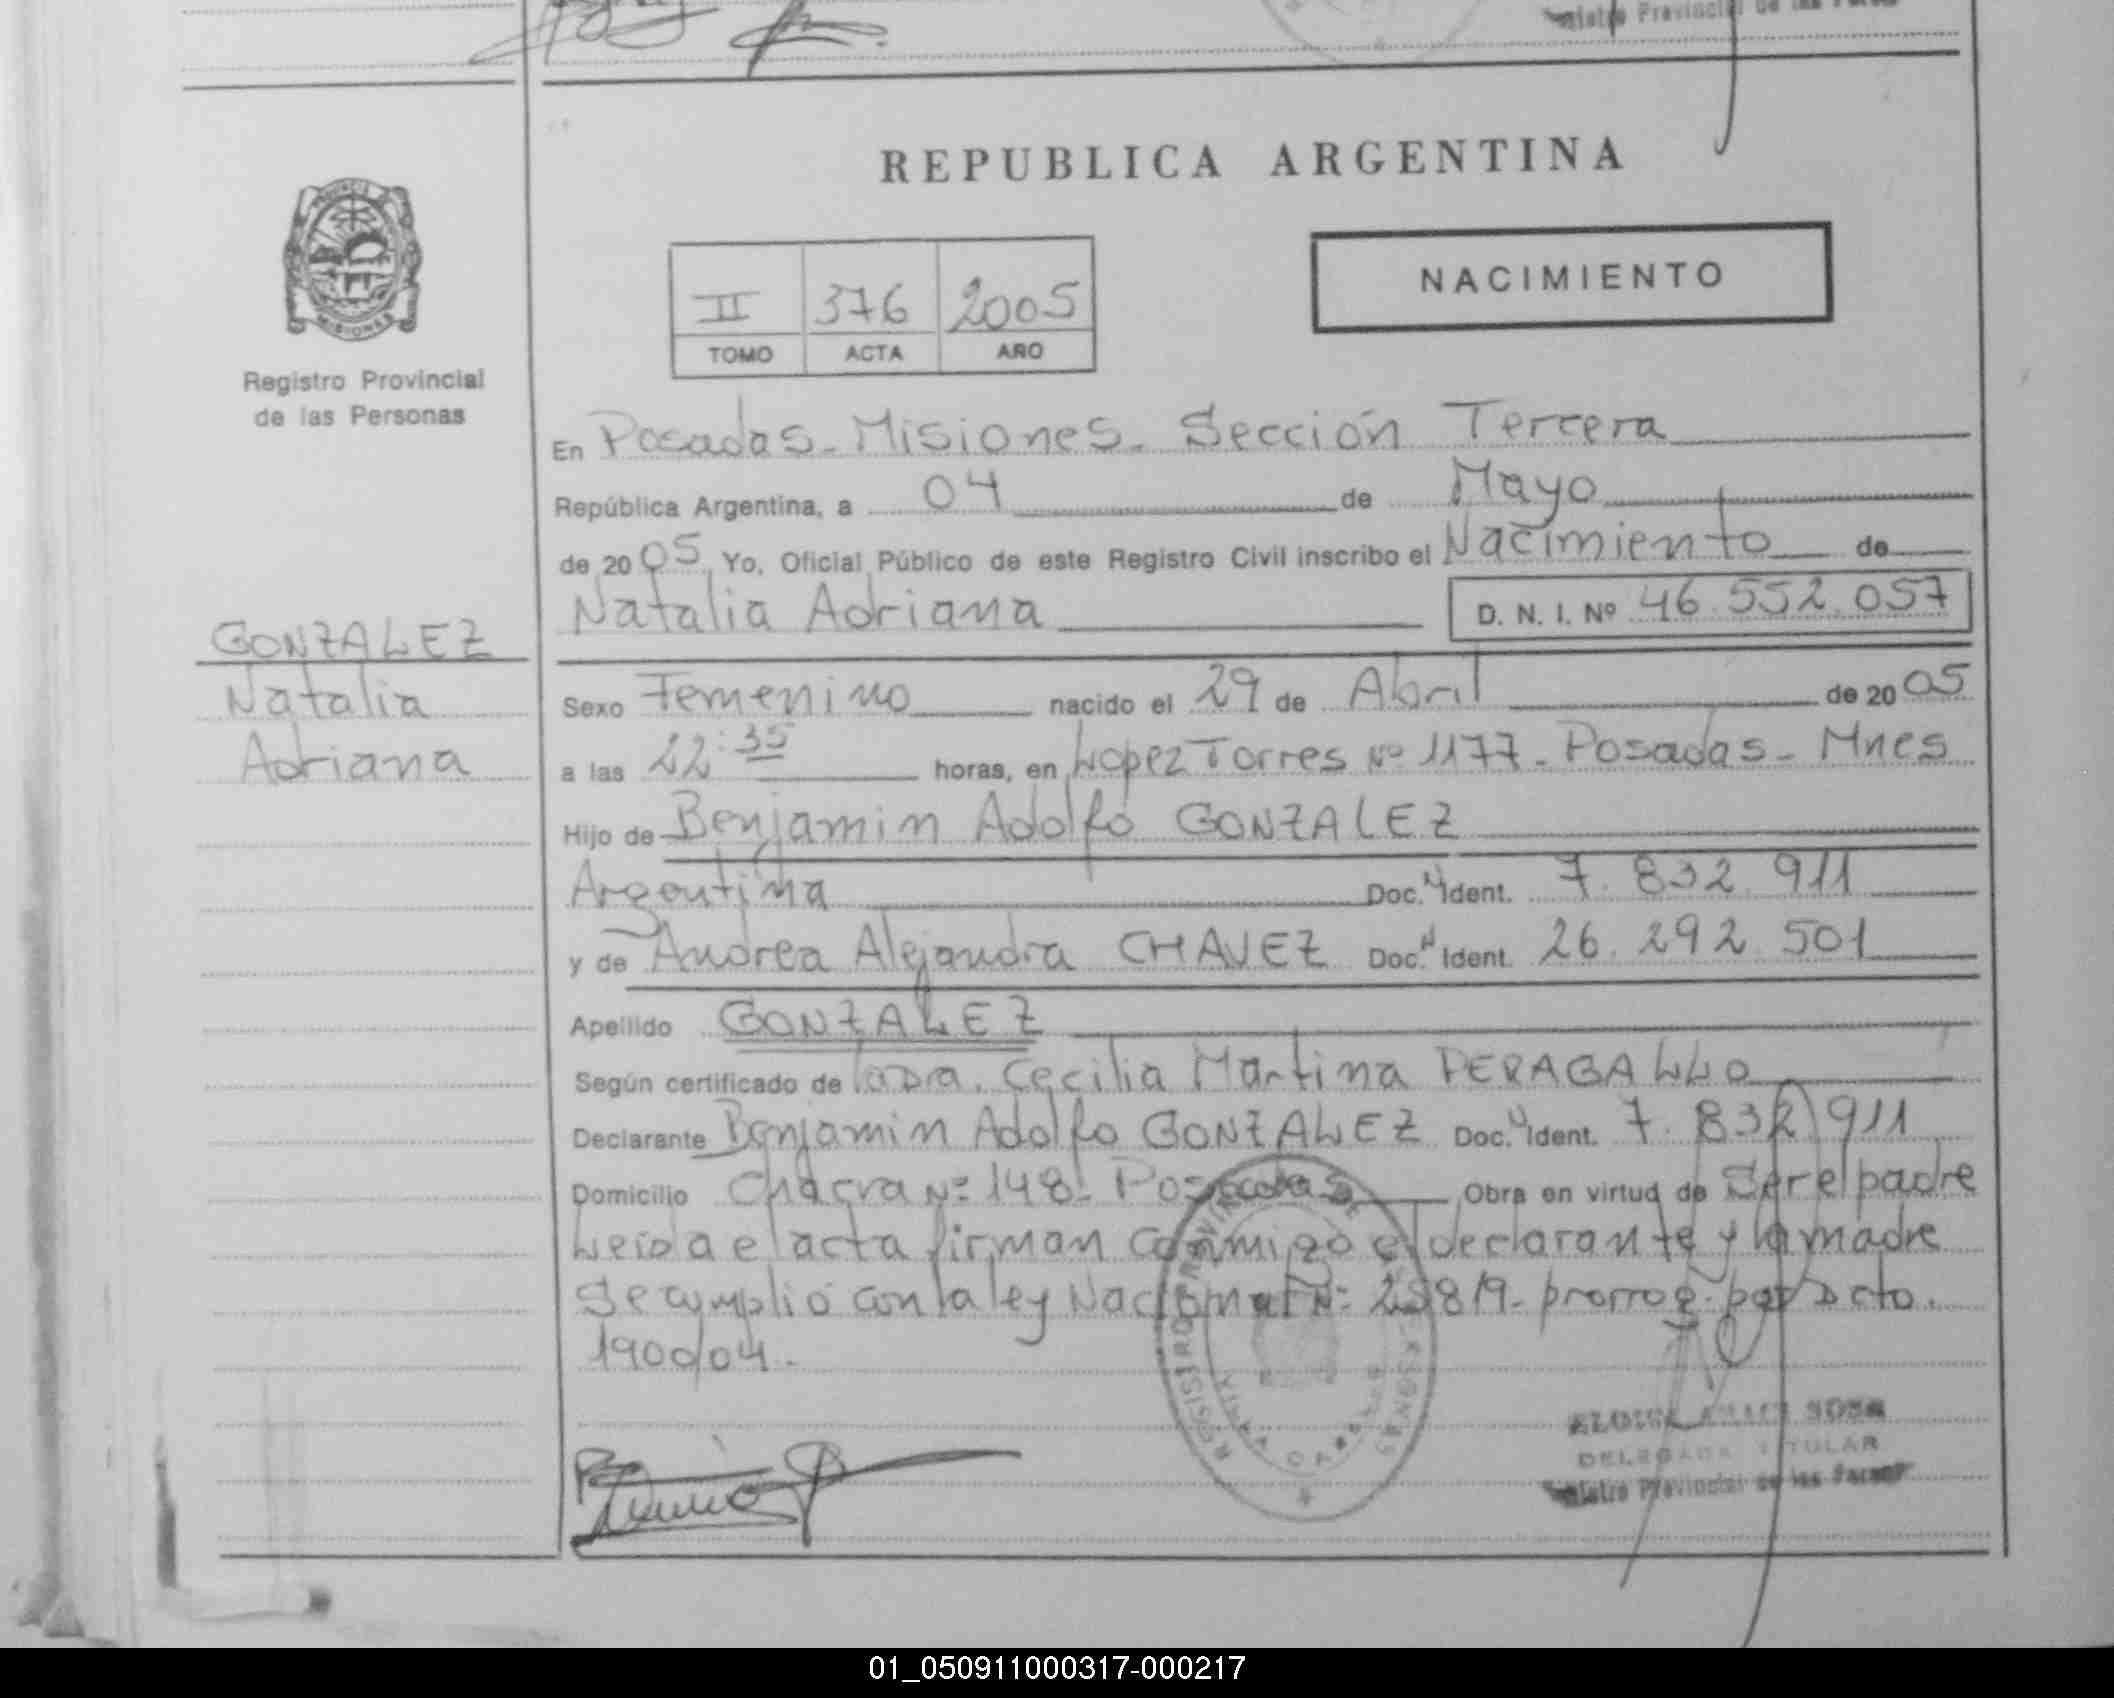 REPUBLICA ARGENTINA
MISIONES
Registro Provincial
de las Personas
II 376 2005
TOMO ACTA AÑO
NACIMIENTO
En Posadas - Misiones - Sección Tercera
República Argentina, a 04 de Mayo
de 2005 Yo, Oficial Público de este Registro Civil inscribo el Nacimiento de
Natalia Adriana D. N. I. Nº 46.552.057
GONZALEZ
Natalia
Adriana
Sexo Femenino nacido el 29 de Abril de 2005
a las 22:35 horas, en Lopez Torres Nº 1177 - Posadas - Mnes
Hijo de Benjamin Adolfo GONZALEZ
Argentina Doc. N Ident. 7.832.911
y de Andrea Alejandra CHAVEZ Doc. N Ident. 26.292.501
Apellido GONZALEZ
Según certificado de la Dra. Cecilia Martina PERAGALLO
Declarante Benjamin Adolfo GONZALEZ Doc. N Ident. 7.832.911
Domicilio Chacra Nº 148 - Posadas Obra en virtud de Ser el padre
Leida el acta firman conmigo el declarante y la madre
Se cumplió con la ley Nacional Nº 25819 - prorrog. por Dcto.
1900/04.
REGISTRO PROVINCIAL DE LAS PERSONAS
DELEGADA TITULAR
Registro Provincial de las Person
01_050911000317-000217